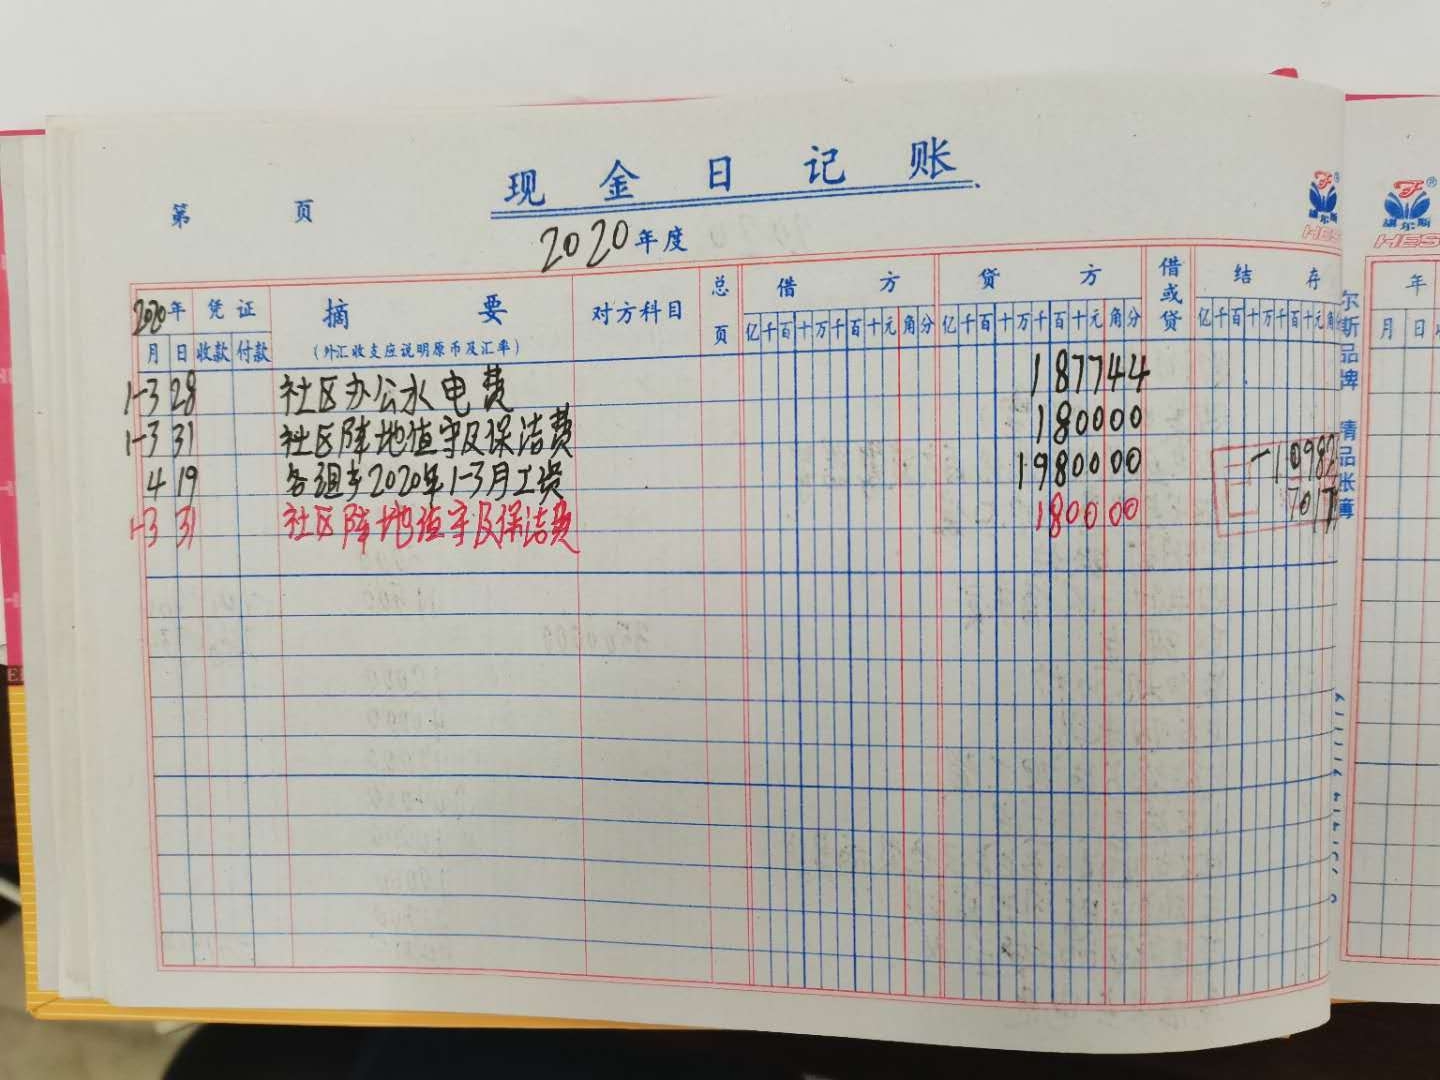 现金日记账
第 页
2020年度
2020年 凭证 摘要 对方科目 总页 借方 贷方 借或贷 结存
月 日 收款 付款 (外汇收支应说明原币及汇率) 亿千百十万千百十元角分 亿千百十万千百十元角分 亿千百十万千百十元角
1-3 28 社区办公水电费 187744
1-3 31 社区阵地值守及保洁费 180000
4 19 各组长2020年1-3月工资 1980000 -10982
1-3 31 社区阵地值守及保洁费 180000 7017
尔斯品牌 精品账簿
康尔斯
HES
康尔斯
HES
年
月 日